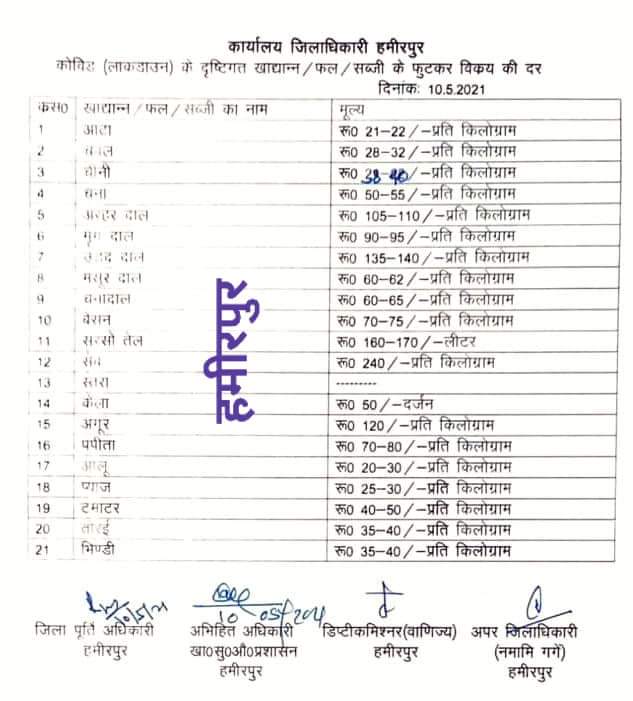 कार्यालय जिलाधिकारी हमीरपुर
कोविड (लाकडाउन) के दृष्टिगत खाद्यान्न/फल/सब्जी के फुटकर विक्रय की दर
दिनांकः 10.5.2021
कस0 खाद्यान्न/फल/सब्जी का नाम मूल्य
1 आटा रू0 21-22/-प्रति किलोग्राम
2 चावल रू0 28-32/-प्रति किलोग्राम
3 चीनी रू0 38-40/-प्रति किलोग्राम
4 चना रू0 50-55/-प्रति किलोग्राम
5 अरहर दाल रू0 105-110/-प्रति किलोग्राम
6 मूग दाल रू0 90-95/-प्रति किलोग्राम
7 उड़द दाल रू0 135-140/-प्रति किलोग्राम
8 मसूर दाल रू0 60-62/-प्रति किलोग्राम
9 चनादाल रू0 60-65/-प्रति किलोग्राम
10 बेसन रू0 70-75/-प्रति किलोग्राम
11 सरसो तेल रू0 160-170/-लीटर
12 सेव रू0 240/-प्रति किलोग्राम
13 ---------
14 केला रू0 50/-दर्जन
15 अगूर रू0 120/-प्रति किलोग्राम
16 पपीता रू0 70-80/-प्रति किलोग्राम
17 आलू रू0 20-30/-प्रति किलोग्राम
18 प्याज रू0 25-30/-प्रति किलोग्राम
19 टमाटर रू0 40-50/-प्रति किलोग्राम
20 तोरई रू0 35-40/-प्रति किलोग्राम
21 भिण्डी रू0 35-40/-प्रति किलोग्राम
हमीरपुर
जिला पूर्ति अधिकारी अभिहित अधिकारी डिप्टीकमिश्नर(वाणिज्य) अपर जिलाधिकारी
हमीरपुर खा0सु0औ0प्रशासन हमीरपुर (नमामि गगें)
हमीरपुर हमीरपुर